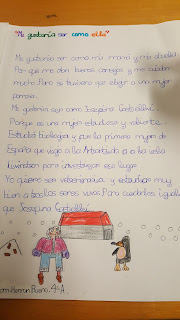 "Me gustaría ser como ella"
Me gustaría ser como mi mamá y mi abuela
Por que me dan buenos consejos y me cuidan
mucho. Pero si tuviera que elegir a una mujer
famosa.
Me gustaría ser como Josefina Castellví
Porque es una mujer estudiosa y valiente.
Estudió biología y fue la primera mujer de
España que viajó a la Antártida a la isla
Livingston para investigar ese lugar.
Yo quiero ser veterinaria y estudiar muy
bien a todos los seres vivos. Para cuidarlos igual
que Josefina Castellví.
Herran Bueno. 4ºA